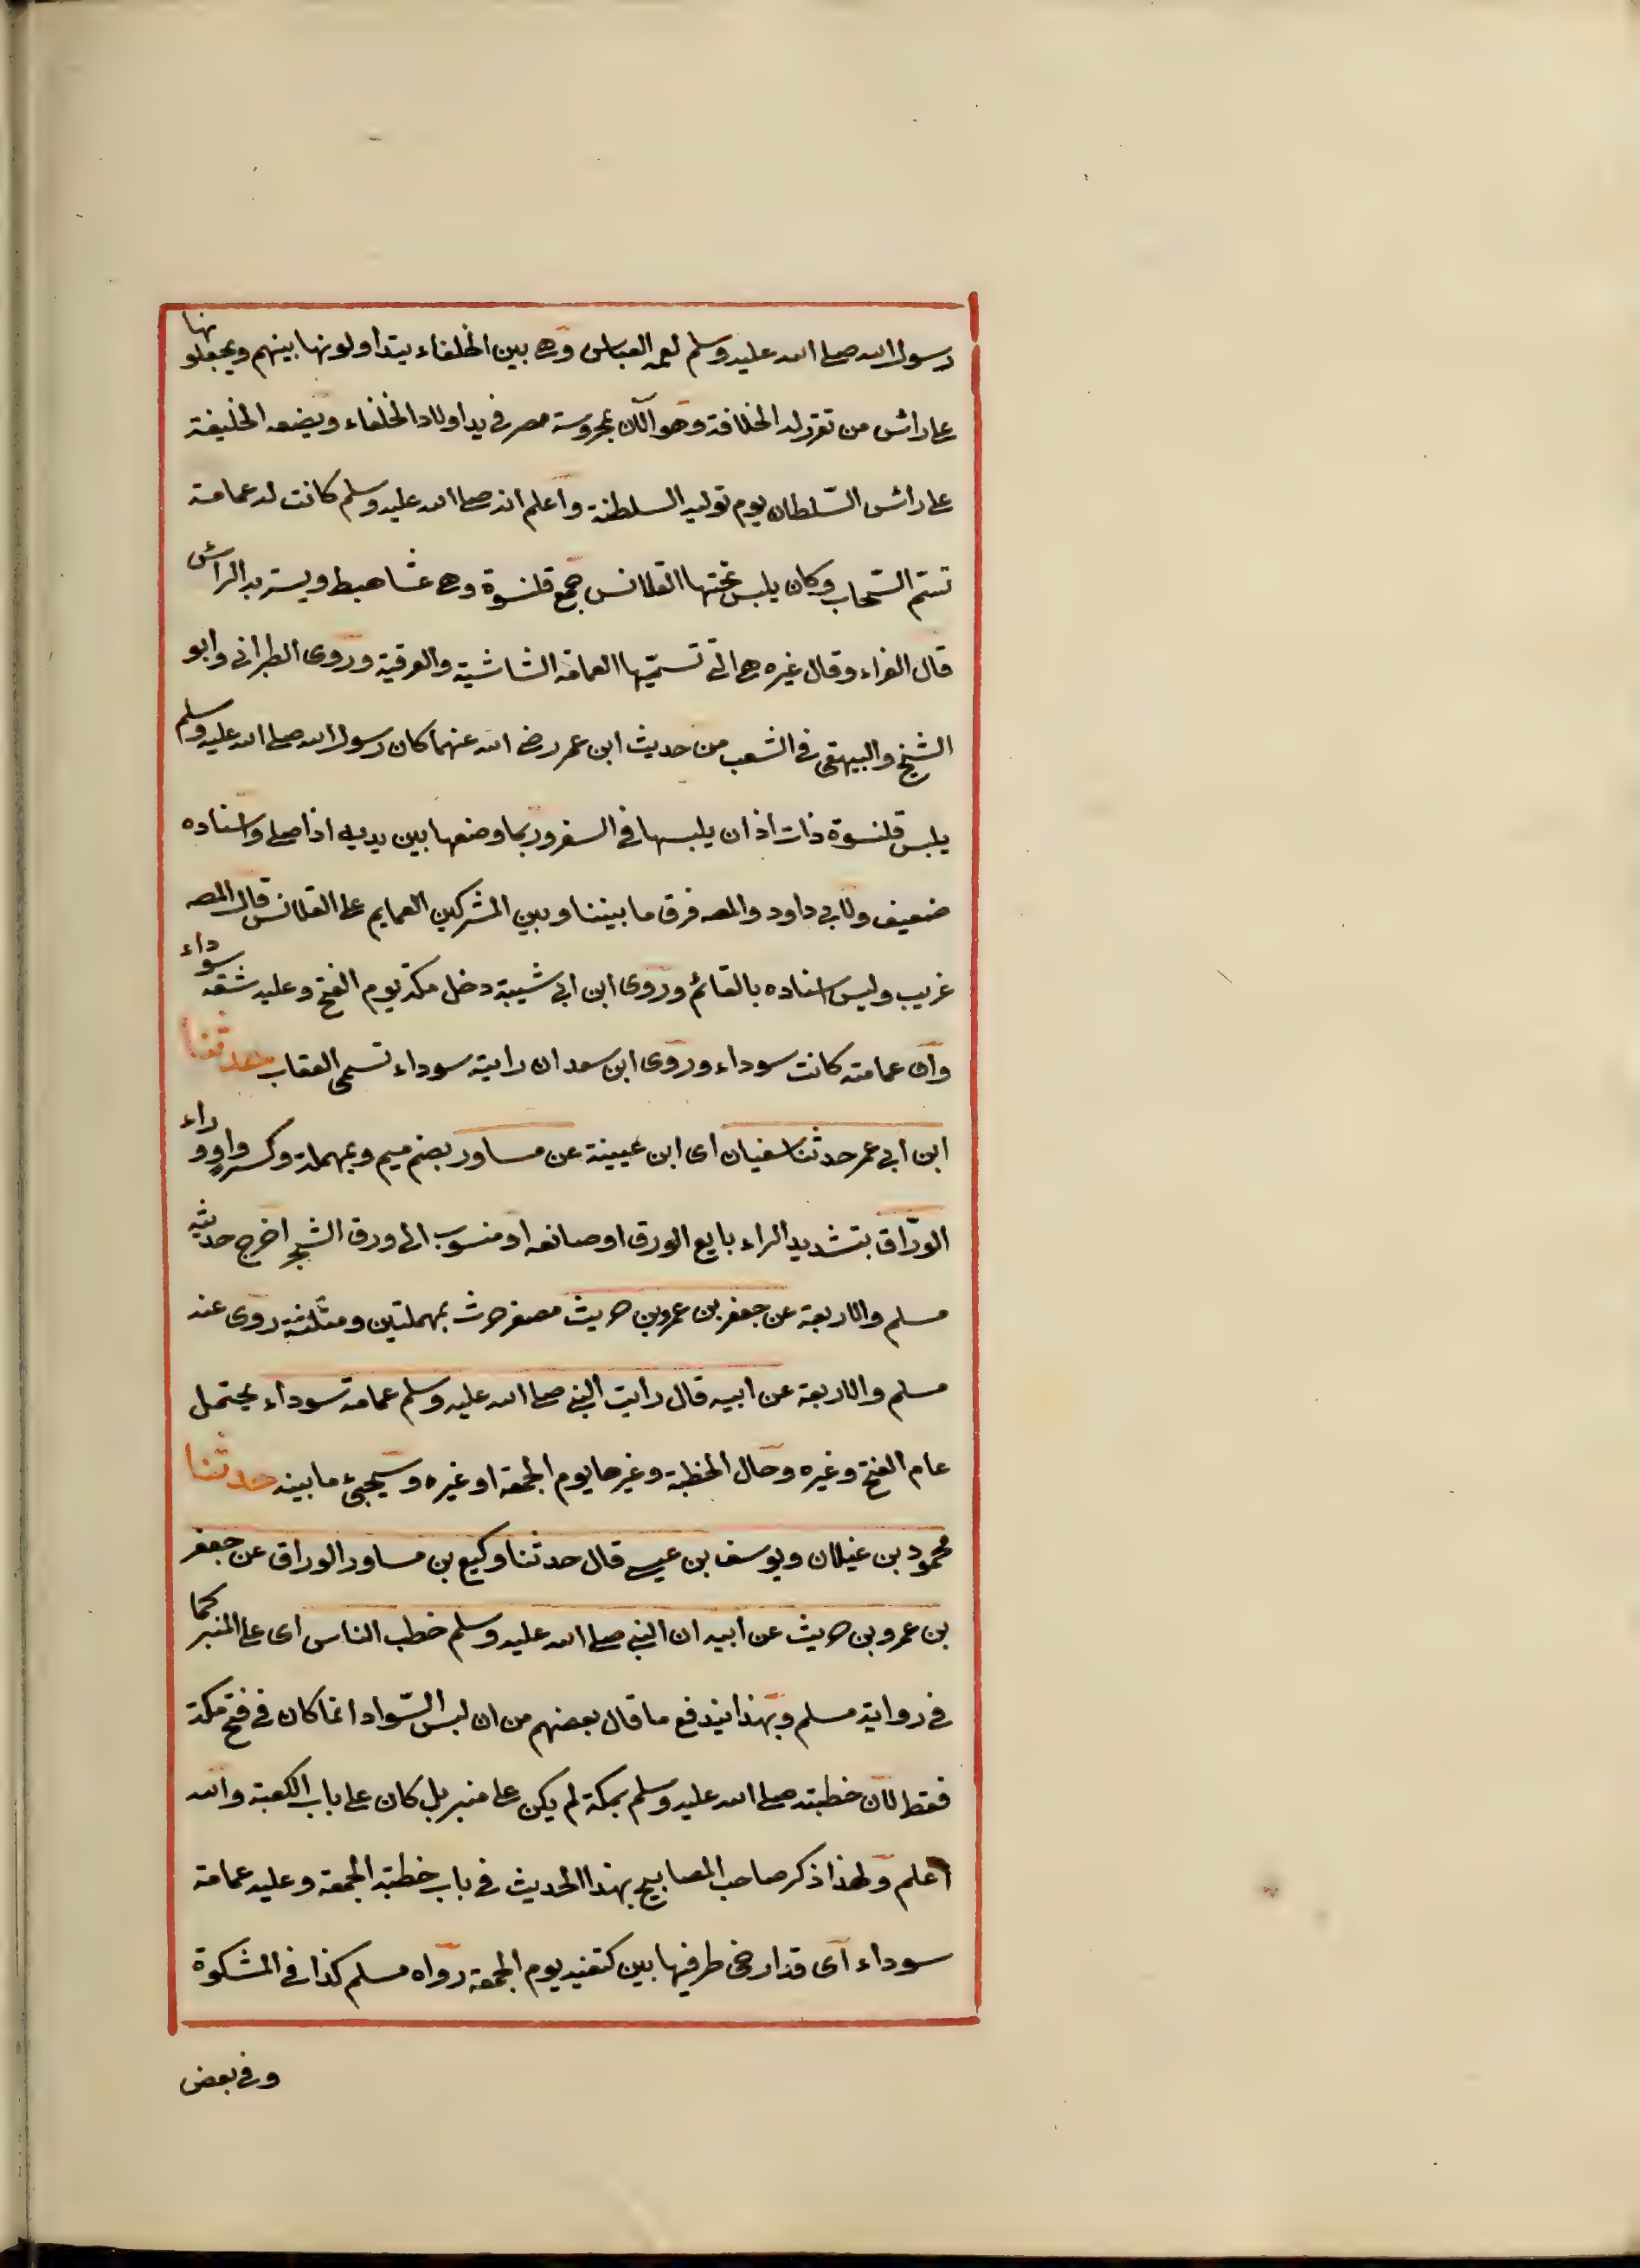 رسول الله صلى الله عليه وسلم لعمه العباس وهى بين الخلفاء يتداولونها بينهم ويجعلونها
على رأس من تقرر له الخلافة وهو الآن بمحروسة مصر فى يد اولاد الخلفاء ويضعه الخليفة
على رأس السّلطان يوم توليه السلطنة واعلم انه صلى الله عليه وسلم كانت له عمامة
تسمّى السّحاب وكان يلبس تحتها القلانس جمع قلنسوة وهى غشا مبط ويستر به الرأس
قال الفراء وقال غيره هى التى تسمّيها العامة الشاشية والعرقية وروى الطبرانى وابو
الشيخ والبيهقى فى الشعب من حديث ابن عمر رضى الله عنهما كان رسول الله صلى الله عليه وسلم
يلبس قلنسوة ذات اذان يلبسها فى السفر وربما وضعها بين يديه اذا صلى واسناده
ضعيف ولابى داود والمصه فرق ما بيننا وبين المشركين العمايم على القلانس قال المصه
غريب وليس اسناده بالقائم وروى ابن ابى شيبة دخل مكة يوم الفتح وعليه شقة سوداء
وان عمامته كانت سوداء وروى ابن سعد ان رايته سوداء تسمى العقاب حدثنا
ابن ابى عمر حدثنا سفيان اى ابن عيينة عن مساور بضم ميم وبمهملة وكسر واو وراء
الورّاق بتشديد الراء بايع الورق او صانعه او منسوب الى ورق الشجر اخرج حديثه
مسلم والاربعة عن جعفر بن عمرو بن حريث مصغر حرث بمهملتين ومثلثة روى عنه
مسلم والاربعة عن ابيه قال رايت النبى صلى الله عليه وسلم عمامة سوداء يحتمل
عام الفتح وغيره وحال الخطبة وغيرها يوم الجمعة او غيره وسيجئ ما بينه حدثنا
محمود بن غيلان ويوسف بن عيسى قال حدثنا وكيع بن مساور الوراق عن جعفر
بن عمرو بن حريث عن ابيه ان النبى صلى الله عليه وسلم خطب الناس اى على المنبر كما
فى رواية مسلم وبهذا يندفع ما قال بعضهم من ان لبس السّواد انما كان فى فتح مكة
فقط لان خطبته صلى الله عليه وسلم بمكة لم يكن على منبر بل كان على باب الكعبة والله
اعلم ولهذا ذكر صاحب المصابيح بهذا الحديث فى باب خطبة الجمعة وعليه عمامة
سوداء اى قد ارخى طرفيها بين كتفيه يوم الجمعة رواه مسلم كذا فى المشكوة
وفى بعض